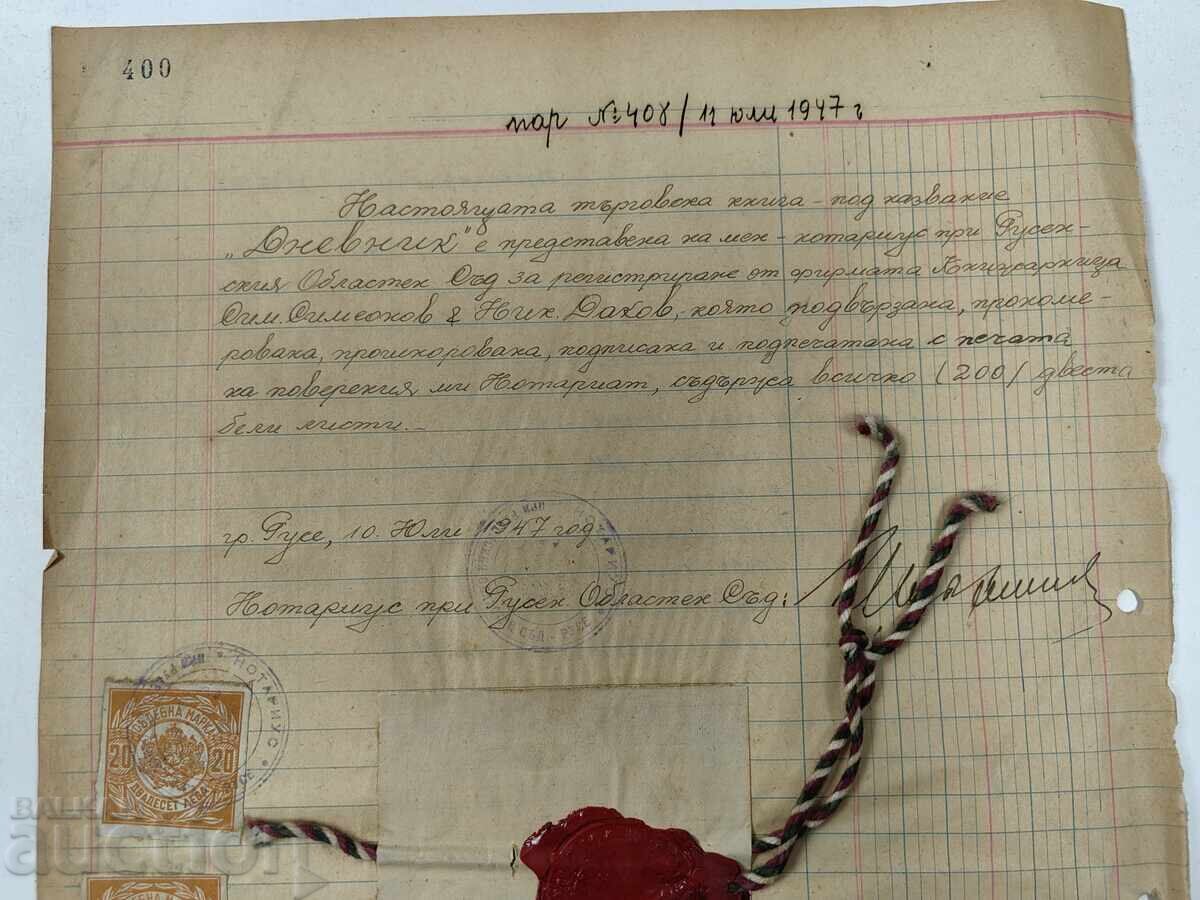 400
пар № 408/11 юли 1947 г
Настоящата търговска книга - под название
„Дневник" е представена на мен - нотариус при Русен-
ския Областен Съд за регистриране от фирмата Книжарница
Сим. Симеонов & Ник. Даков, - която подвързана, прономе-
рована, прошнорована, подписана и подпечатана с печата
на поверения ми Нотариат, съдържа всичко (200/ двеста
бели листи. -
гр. Русе, 10. Юли 1947 год
Нотариус при Русен Областен Съд:
НОТАРИУС
СЪД - РУСЕ
НОТАРИУС
СЪДЕБНА МАРКА
20 20
ДВАДЕСЕТ ЛЕВА
auction